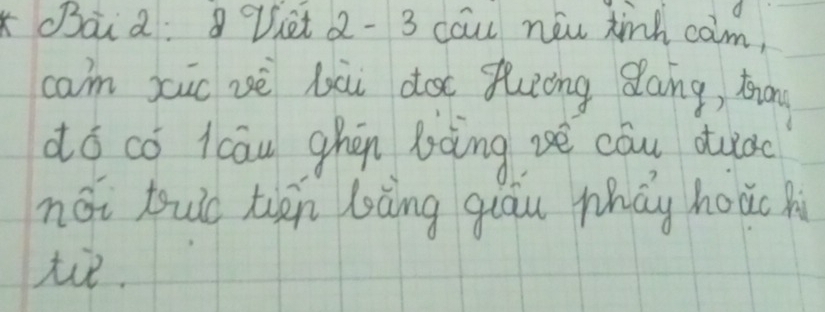 * Bài 2: Viết 2 - 3 câu nêu tình cảm,
cảm xúc về bài đọc Hương làng, trong
đó có 1 câu ghép bằng vế câu được
nối trực tiếp bằng giấu phẩy hoặc
từ.